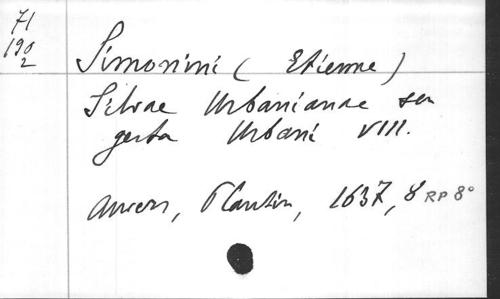 71
190
2
Simonini ( Etienne )
Silvae Urbanianae seu
gesta Urbani VIII.
Anvers, Plantin, 1637, 8 RP 8°